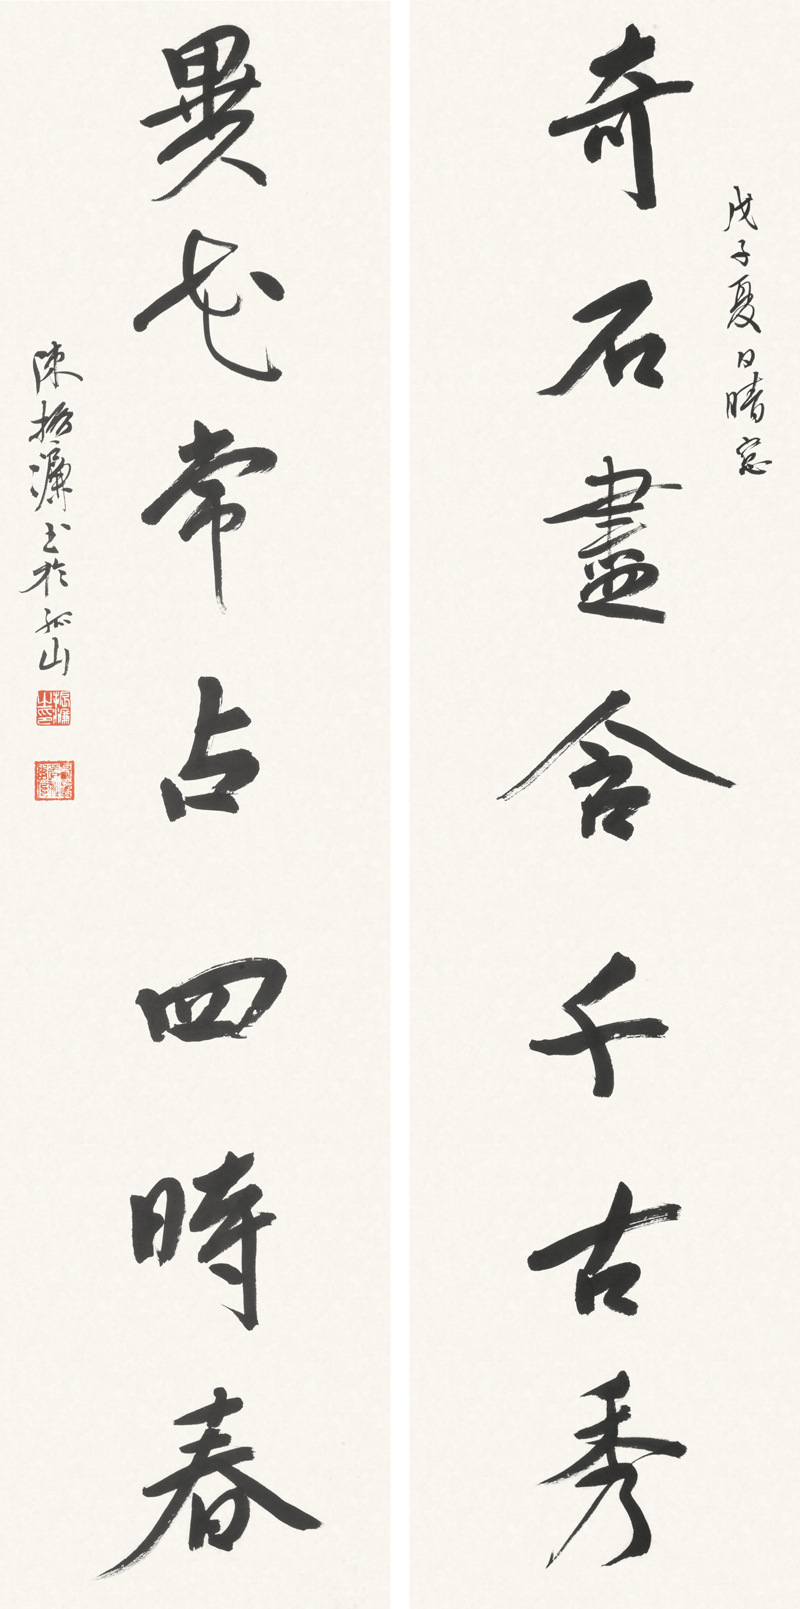 奇石盡含千古秀
戊子夏日晴窓
異花常占四時春
陳振濂书於孤山
振濂之印